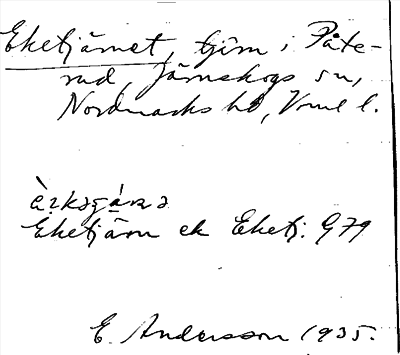 Eketjärnet, tjärn i Påte-
rud, Järnskogs sn,
Nordmarks hd, Vrml l.
Eketjärn ek Eketj. G79
E. Andersson 1935.